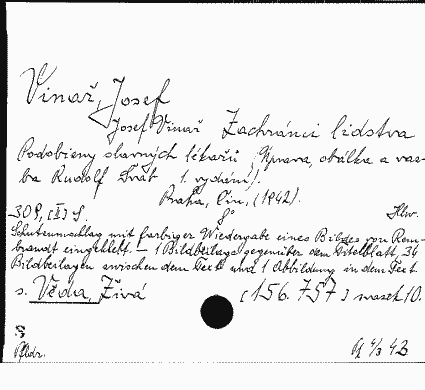 Vinař, Josef
Josef Vinař Zachránci lidstva
Podobizny slavných lékařů (Úprava, obálka a vaz-
ba Rudolf Šváb 1. vydání).
Praha, Čin, (1942).
309, [I] S. 8° Hlw.
Schutzumschlag mit farbiger Wiedergabe eines Bildes von Rem-
brandt eingeklebt. – 1 Bildbeilage gegenüber dem Titelblatt, 34
Bildbeilagen zwischen dem Text und 1 Abbildung in dem Text
s. Věda, Živá [156.757] svazek 10.
Pfldr. 42